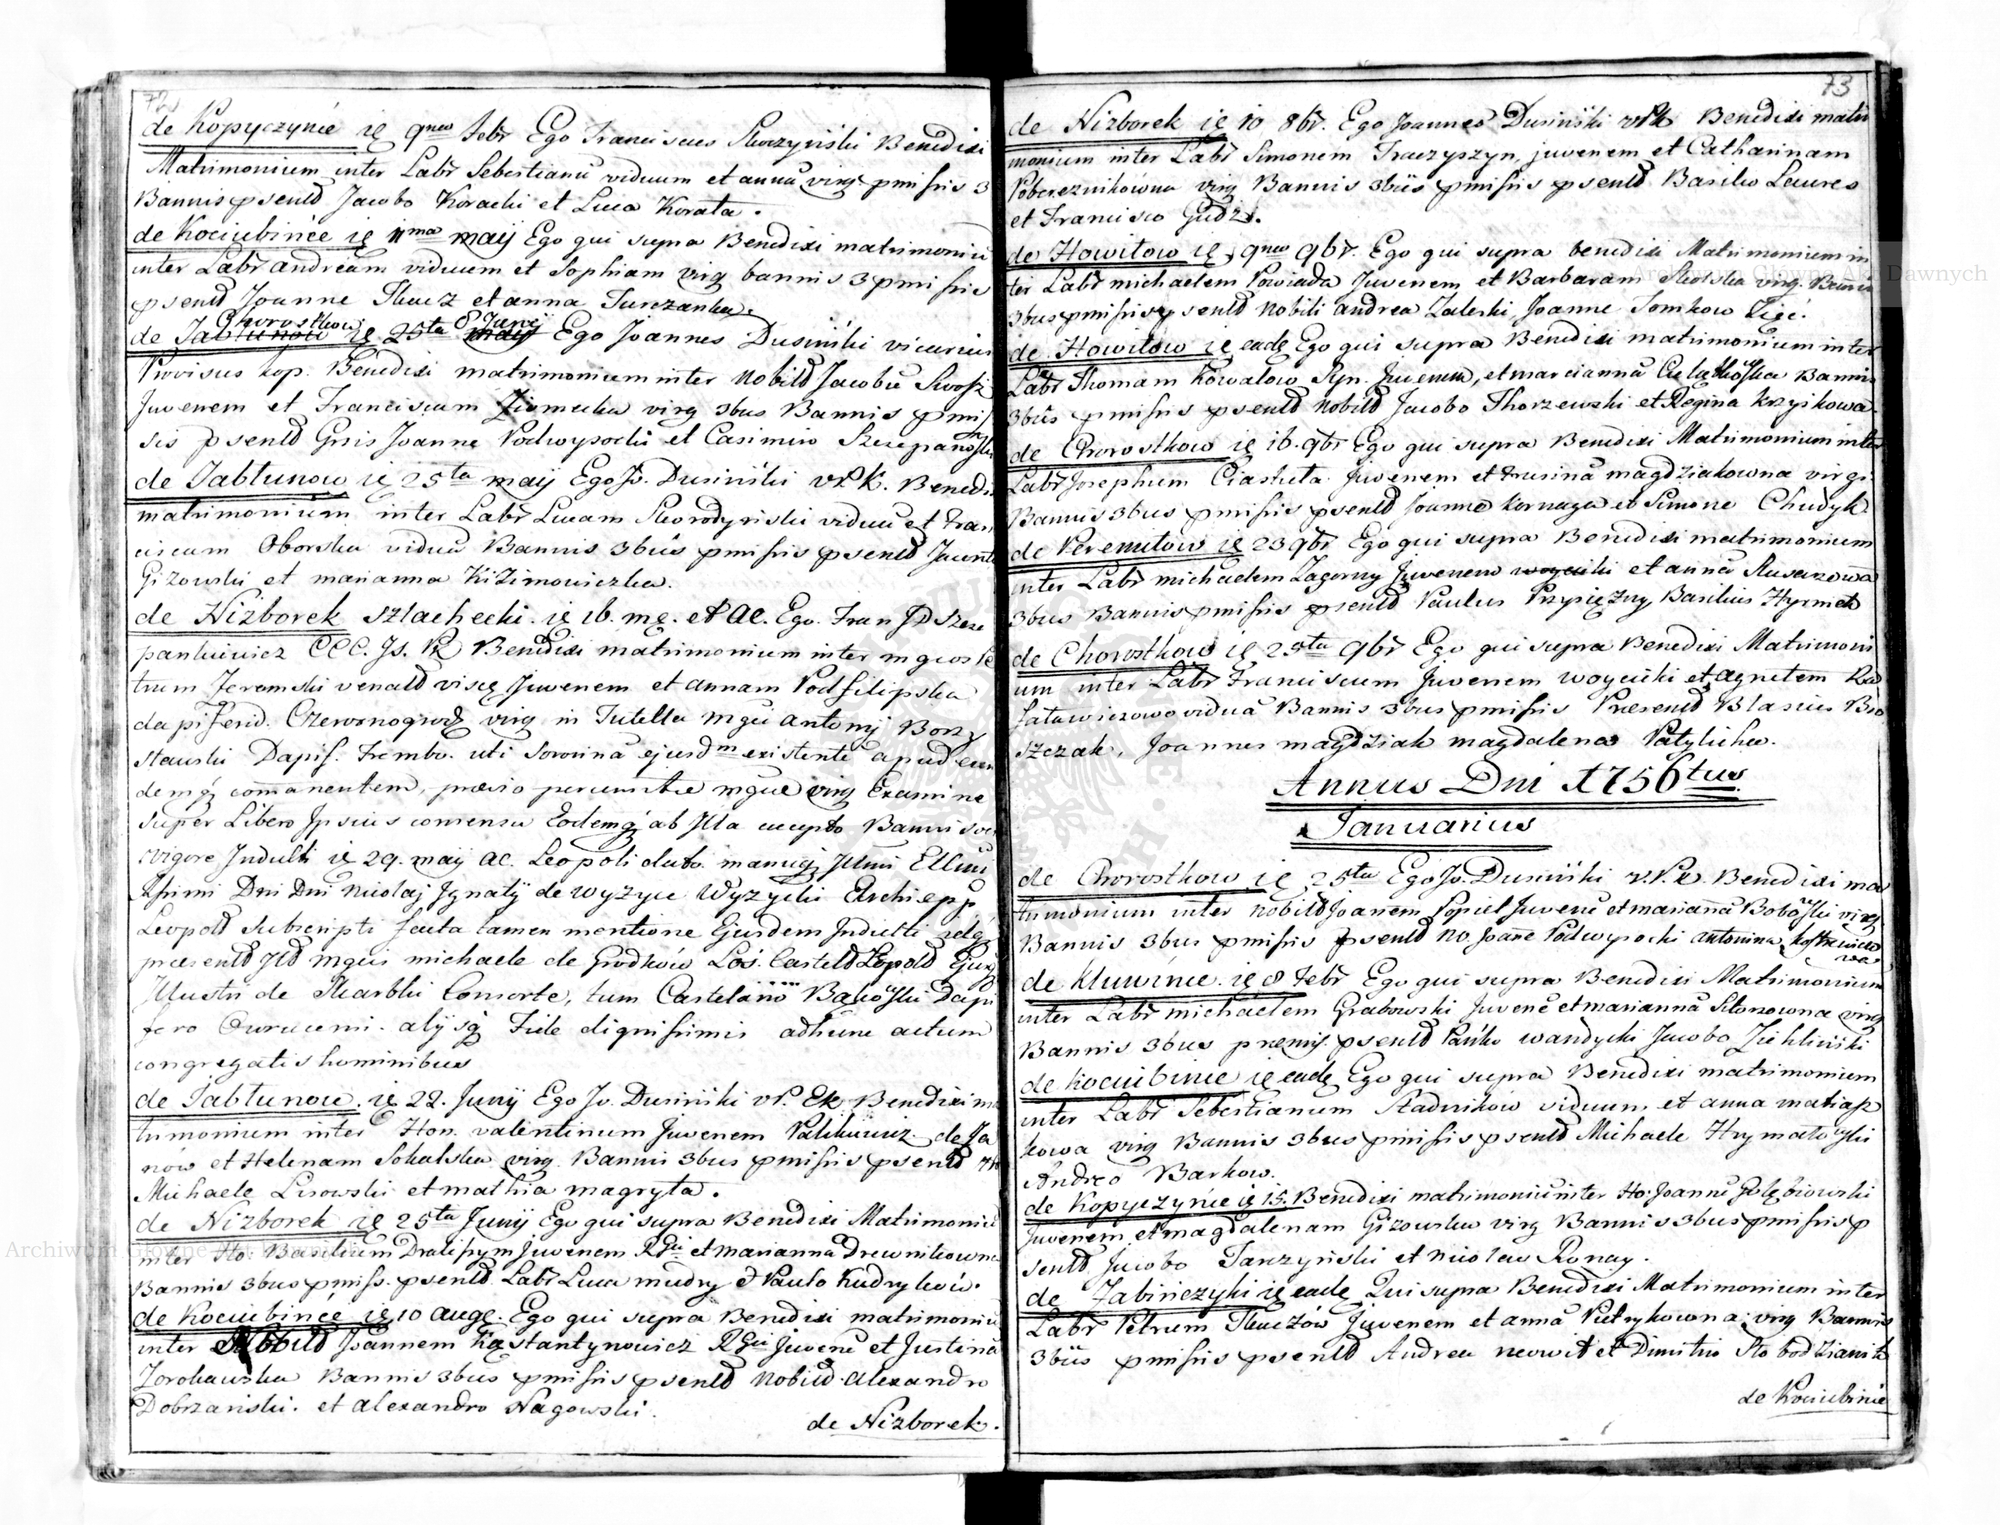 72
de Kopyczyńce ię 9na febr Ego Franciscus Skarzyński Benedixi
Matrimonium inter Labr Sebestianū viduum et annā virg pmissis 3
Bannis psentb Jacobo Koracki et Luca Korata.
de Kociubińce ię 11ma maÿ Ego qui supra Benedixi matrimoniū
inter Labr andream viduum et Sophiam virg bannis 3 pmissis
psentb Joanne Tkacz et anna Turczanka.
Chorostkow 8 Junÿ
de Jabłunow ię 25ta maÿ Ego Joannes Dusiński vicarius
Provisus kop. Benedixi matrimonium inter Nobild Jacobū
Juvenem et Franciscam virg 3bus Bannis pmis
sis psentb Grsis Joanne Podwysocki et Casimiro Szczepanoski
de Jabłunow ię 25ta maÿ Ego Jo. Dusiński VPK. Benedi
matrimonium inter Labr Lucam Skorodyński viduū et Fran
ciscam Oborska viduā Bannis 3bus pmissis psentb Jacinto
Gizowski et marianna Kizimowiczka.
de Nizborek szlachecki. ię 16. mę. et ac. Ego Fran JD Szcze
pankiewicz CCC. Js. Benedixi matrimonium inter mgcos Pe
trum Jeromski venatd visię Juvenem et annam Podfilipska
dapiferid. Czerwonogrod virg in Tutella mgci antonij Borzy
sławski Dapif. Trembo. uti Sororina ejusdm existente apud eun
demq comanentem, previo percunctae mgce virg Examine
super Libero Ipsius consensu Eodemq ab Illa accepto Bannis
vigore Indulti ię 29. maÿ ac. Leopoli dato manuq Illmi Exllmi
Rssimi Dni Dni Nicolaj Ignatÿ de Wyzyce Wyzycki Archiepp
Leopold subscripti facta tamen mentione Ejusdem Indulti
præsentb Ild mgcis michaele de Grodków Łoś. Castelld Leopold Ejusq
Illustri de Skarbki Consorte, tum Castelano Bakoski Dapi
fero Owrucemi. alÿsq Fide dignissimis adhunc actum
congregatis hominibus
de Jabłunow. ię 22. Junÿ Ego Jo. Dusiński VP. Ek Benedixi ma
trimonium inter Hon. valentinum Juvenem Palikiewicz de Ja
nów et Helenam Sokalska virg Bannis 3bus pmissis psentb
Michaele Lisowski et mathia magryta.
de Nizborek ię 25ta Junÿ Ego qui supra Benedixi Matrimoniū
inter Ho. Basilium Dratisym Juvenem Rgci et marianna Drewnikowna
Bannis 3bus pmiss. psentb Labr Luca mudry & Paulo Kudrykow.
de Kociubińce ię 10 augę. Ego qui supra Benedixi matrimoniū
inter Nobild Joannem Kęstantynowicz Rgci Juvenē et Justinā
Zorohawska Bannis 3bus pmissis psentb Nobild. alexandro
Dobrzański. et alexandro Nagowski.
de Nizborek.
73
de Nizborek ię 10 8br. Ego Joannes Dusiński VPK Benedixi matri
monium inter Labr Simonem Traczyszyn, juvenem et Catharinam
Poberezníkówna virg Bannis 3bus pmissis psentb Basilio Laures
et Francisco Gudz.
de Howiłow ię 9na 9br. Ego qui supra benedixi Matrimonium in
ter Labr michaelem Powiada Juvenem et Barbaram Skolska virg. Bannis
3bus pmissis psentb nobili andrea Zaleski, Joanne Tomkow
de Howiłow ię eadę Ego qui supra Benedixi matrimonium inter
Labr Thomam Kowalow Syn. Juvenem, et mariannā Bannis
3bus pmissis psentb Nobild Jacobo Thorzewski et Regina krzyikowa
de Chorostkow ię 16. 9br Ego qui supra Benedixi Matrimonium inter
Labr Josephum Ciastuta Juvenem et magdziakowna virgi
Bannis 3bus pmissis psentb Joanne Kornaga et Simone Chudyk
de Peremiłow ię 23 9br Ego qui supra Benedixi matrimonium
inter Labr michaelem Zagorny Juvenem et annā Rusarzowā
3bus Bannis pmissis psentb Paulus Przysięzny, Basilius Hyrmek
de Chorostkow ię 25ta 9br Ego qui supra Benedixi Matrimoni
um inter Labr Franciscum Juvenem woycicki et agnetem Ra
fałowiczowo viduā Bannis 3bus pmissis Præsentb Blasius Bro
szczak, Joannes magdziak magdalena Patylicha.
Annus Dni 1756tus
Januarius
de Chorostkow ię 25ta Ego Jo. Dusiński V.P.K. Benedixi ma
trimonium inter nobild Joanem Popiel Juvenē et mariannā Boboski virg
Bannis 3bus pmissis psentb No. Joane Podwysocki antonina kostkiewiczo
wa
de Kluwińce. ię 8 febr Ego qui supra Benedixi Matrimonium
inter Labr michaelem Grabowski Juvenē et marianna Słonowna virg
Bannis 3bus premis. psentb Pańko wandycki Jacobo Zieliński
de Kociubińce ię eadę Ego qui supra Benedixi matrimonium
inter Labr Sebestianum Stadników viduum et anna matiasz
kowa virg Bannis 3bus pmissis psentb Michaele Hrymałocyki
Andreo Barkow.
de Kopyczyńce ię 15. Benedixi matrimoniū inter Ho. Joannē Gołębiowski
Juvenem et magdalenam Gizowska virg Bannis 3bus pmissis p
sentb Jacobo Tarzyński et Nicolao Ronay.
de Zabinczyki ię eadę Qui supra Benedixi Matrimonium inter
Labr Petrum Tkaczów Juvenem et annā Petrykowna virg Bannis
3bus pmissis psentb Andrea neowit et Dimitrio Słobodzianik
de Kociubińce
Archiwum Główne Akt Dawnych
Archiwum Główne